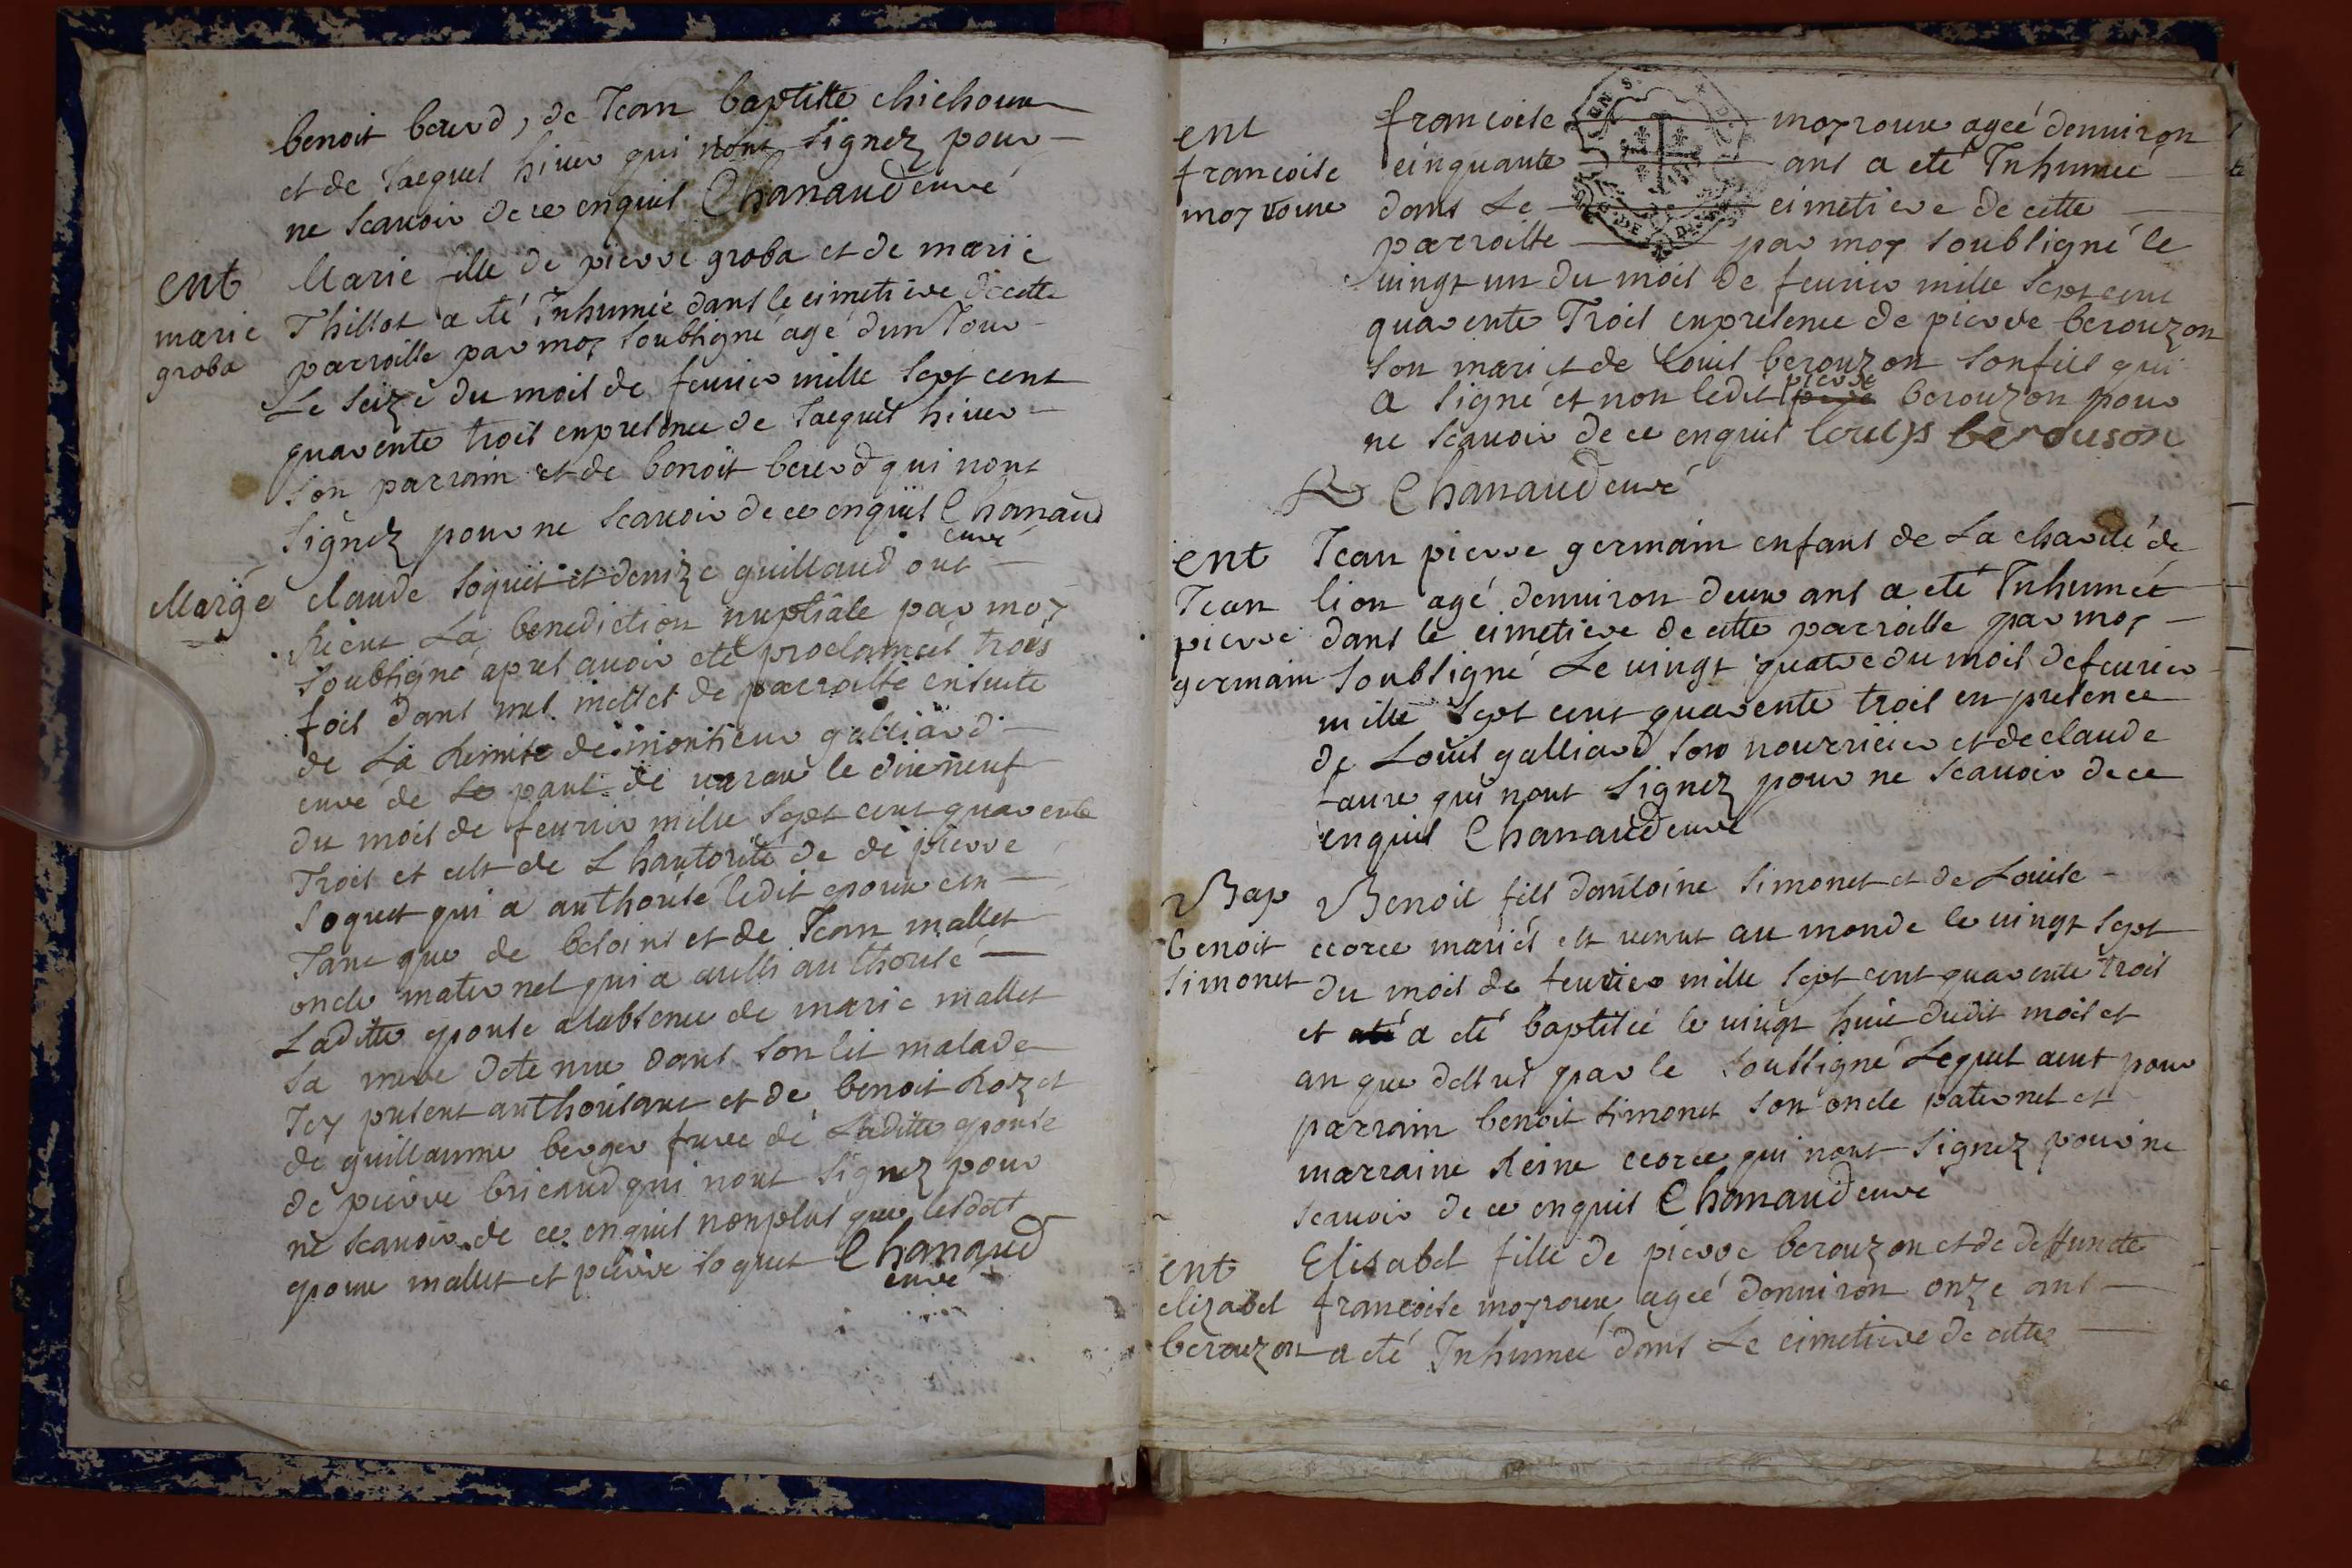 benoit bererd, de Jean baptiste chichoux
et de Jacques hiver qui nont signez pour
ne scavoir de ce enquis Chanaud curé
ent
marie
groba
Marie fille de pierre groba et de marie
Thillot a été Inhumée dans le cimetiere de cette
parroisse par moy soubsigné agé dun Jour
Le seize du mois de fevrier mille sept cent
quarente trois en presence de Jacques hiver
son parrain et de benoit bererd qui nont
signez pour ne scavoir de ce enquis Chanaud
curé
Marige
claude soquet et denize guillaud ont
Recent La benediction nuptiale par moy
soubsigné apres avoir été proclamés trois
fois dans nos messes de parroisse ensuite
de La Remise de monsieur galliard
curé de st paul de varax le dixneuf
du mois de fevrier mille sept cent quarente
Trois et cest de L hautorité de de pierre
soquet qui a authorisé ledit epoux en
Tant que de besoins et de Jean mallet
oncle maternel qui a aussi authorisé
Laditte epouse a labsence de marie mallet
sa mere detenue dans son lit malade
Icy present authorisant et de benoit Rozet
de guillaume berger frere de Laditte epouse
de pierre bricaud qui nont signez pour
ne scavoir de ce enquis nonplus que lesdits
epoux mallet et pierre soquet Chanaud
curé
ent
francoise
moyroux
francoise moyroux agéé denviron
cinquante ans a eté Inhumeé
dans Le cimetiere de cette
parroisse par moy soubsigné le
vingt un du mois de fevrier mille sept cent
quarente Trois enpresence de pierre berouzon
son mari et de Louis berouzon sonfils qui
a signé et non ledit pierre berouzon pour
ne scavoir de ce enquis louys berouson
Chanaud curé
ent
Jean
pierre
germain
Jean pierre germain enfant de La charité de
lion agé denviron deux ans a eté Inhumée
dans le cimetiere de cette parroisse par moy
soubsigné Le vingt quatre du mois de fevrier
mille sept cent quarente trois en presence
de Louis galliard son nourricier et de claude
faure qui nont signez pour ne scavoir de ce
enquis Chanaud curé
Bap
benoit
simonet
Benoit fils dantoine simonet et de Louise
ecorce mariés est venut au monde le vingt sept
du mois de fevrier mille sept cent quarente trois
et a eté baptiséé le vingt huit dudit mois et
an que dessus par le soussigné Lequel aeut pour
parrain benoit simonet son oncle paternel et
marraine Reine ecorce qui nont signez pour ne
scavoir de ce enquis Chanaud curé
ent
elizabet
berouzon
Elisabet fille de pierre berouzon et de deffuncte
francoise moyroux agéé denviron onze ans
a eté Inhumeé dans Le cimetiere de cette